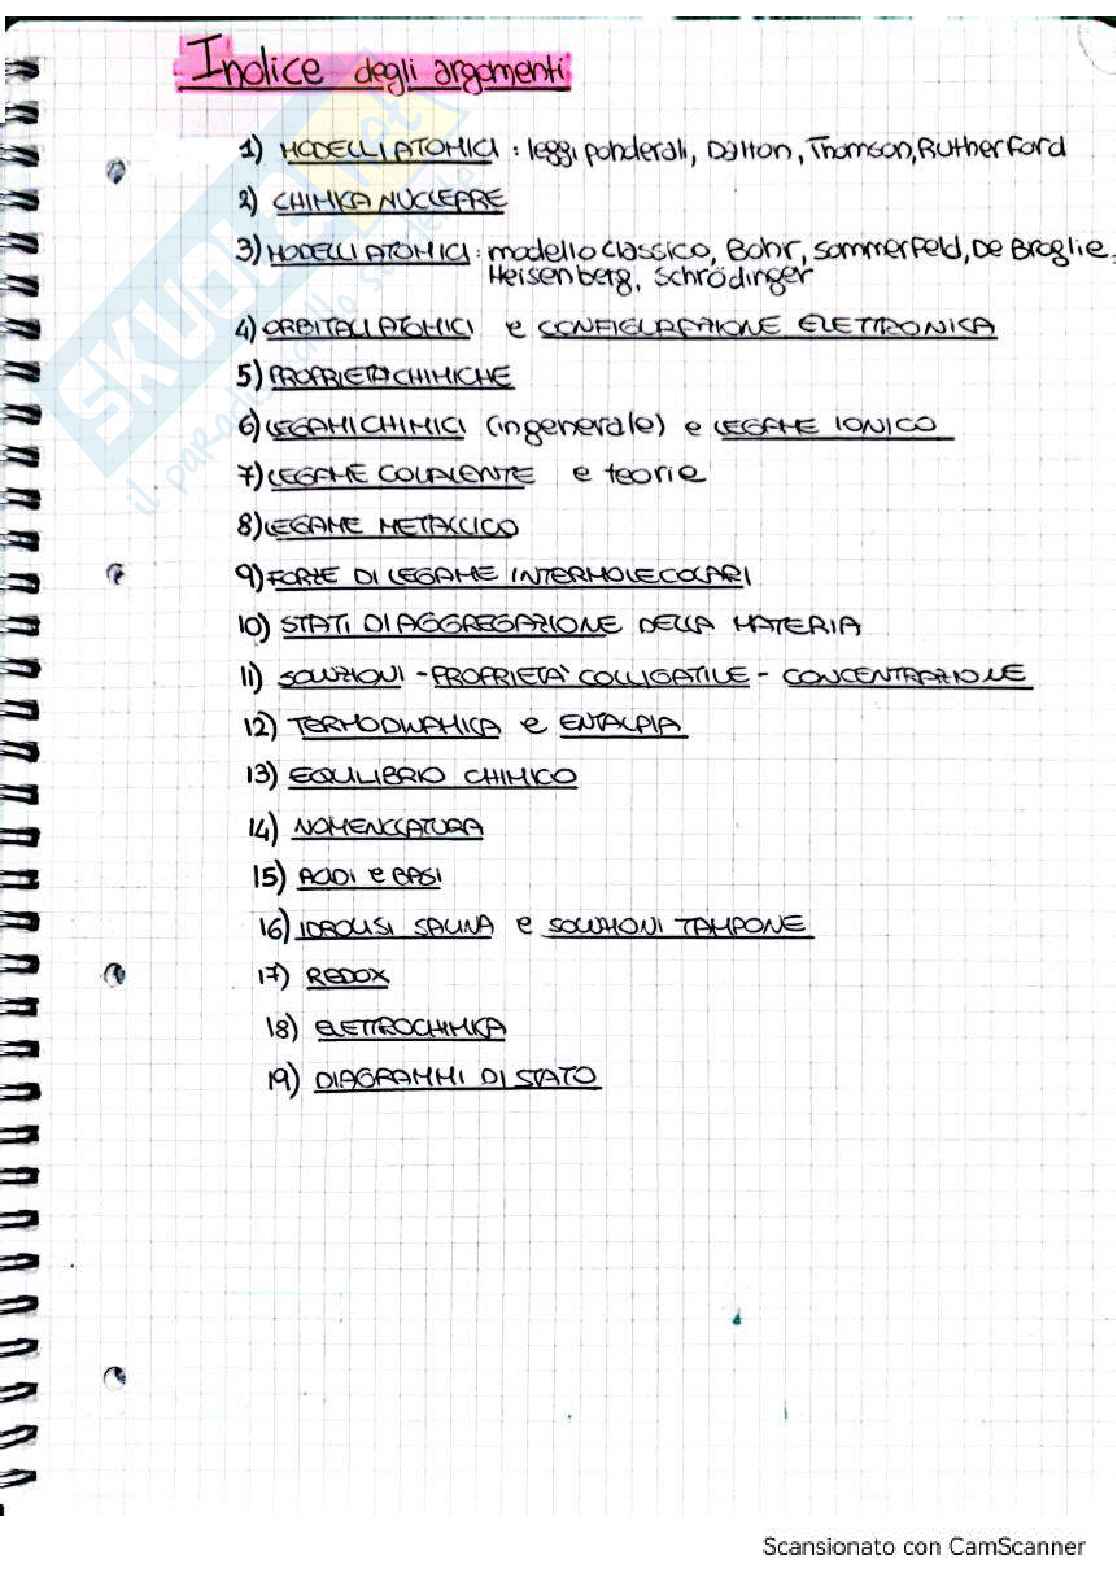 Indice degli argomenti
1) MODELLI ATOMICI : leggi ponderali, Dalton, Thomson, Rutherford
2) CHIMICA NUCLEARE
3) MODELLI ATOMICI : modello classico, Bohr, Sommerfeld, De Broglie,
Heisenberg, Schrödinger
4) ORBITALI ATOMICI e CONFIGURAZIONE ELETTRONICA
5) PROPRIETÀ CHIMICHE
6) LEGAMI CHIMICI (in generale) e LEGAME IONICO
7) LEGAME COVALENTE e teorie
8) LEGAME METALLICO
9) FORZE DI LEGAME INTERMOLECOLARI
10) STATI DI AGGREGAZIONE DELLA MATERIA
11) SOLUZIONI - PROPRIETÀ COLLIGATILE - CONCENTRAZIONE
12) TERMODINAMICA e ENTALPIA
13) EQUILIBRIO CHIMICO
14) NOMENCLATURA
15) ACIDI e BASI
16) IDROLISI SALINA e SOLUZIONI TAMPONE
17) REDOX
18) ELETTROCHIMICA
19) DIAGRAMMI DI STATO
SKUOLA.net
il paradiso dello studente
Scansionato con CamScanner